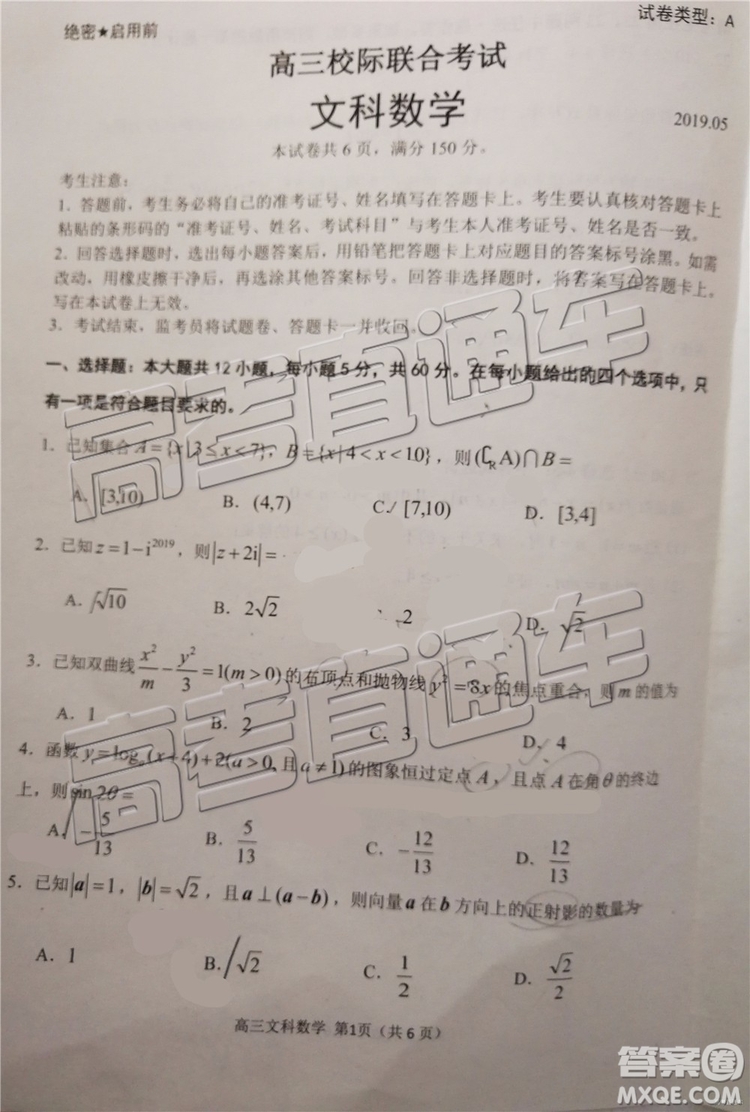 试卷类型：A
绝密★启用前
高三校际联合考试
文科数学
2019.05
本试卷共6页，满分150分。
考生注意：
1．答题前，考生务必将自己的准考证号、姓名填写在答题卡上。考生要认真核对答题卡上
粘贴的条形码的“准考证号、姓名、考试科目”与考生本人准考证号、姓名是否一致。
2．回答选择题时，选出每小题答案后，用铅笔把答题卡上对应题目的答案标号涂黑。如需
改动，用橡皮擦干净后，再选涂其他答案标号。回答非选择题时，将答案写在答题卡上。
写在本试卷上无效。
3．考试结束，监考员将试题卷、答题卡一并收回。
一、选择题：本大题共12小题，每小题5分，共60分。在每小题给出的四个选项中，只
有一项是符合题目要求的。
1．已知集合A={x|3≤x<7}，B={x|4<x<10}，则(∁RA)∩B=
A．[3,10) B．(4,7) C．[7,10) D．[3,4]
2．已知z=1−i^2019，则|z+2i|=
A．√10 B．2√2 2 D．√2
3．已知双曲线x²/m−y²/3=1(m>0)的右顶点和抛物线y²=8x的焦点重合，则m的值为
A．1 B．2 C．3 D．4
4．函数y=logₐ(x+4)+2(a>0，且a≠1)的图象恒过定点A，且点A在角θ的终边
上，则sin2θ=
A．−5/13 B．5/13 C．−12/13 D．12/13
5．已知|a|=1，|b|=√2，且a⊥(a−b)，则向量a在b方向上的正射影的数量为
A．1 B．√2 C．1/2 D．√2/2
高三文科数学 第1页（共6页）
高考直通车
高考直通车
答案圈
MXQE.COM